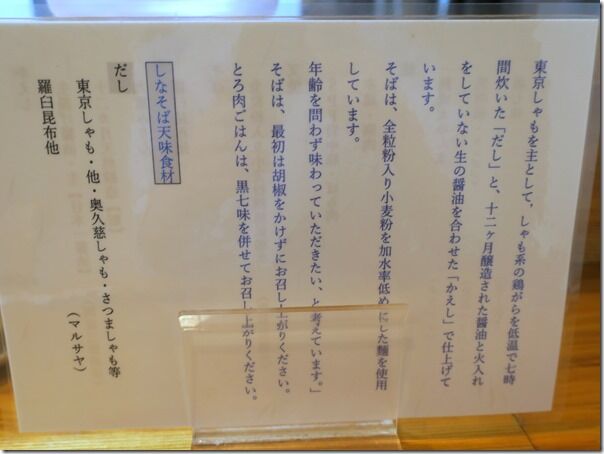 東京しゃもを主として，しゃも系の鶏がらを低温で七時
間炊いた「だし」と、十二ヶ月醸造された醤油と火入れ
をしていない生の醤油を合わせた「かえし」で仕上げて
います。
そばは、全粒粉入り小麦粉を加水率低めにした麺を使用
しています。
年齢を問わず味わっていただきたい、と考えています。」
そばは、最初は胡椒をかけずにお召し上がりください。
とろ肉ごはんは、黒七味を併せてお召し上がりください。
しなそば天味食材
だし
東京しゃも・他・奥久慈しゃも・さつましゃも等
（マルサヤ）
羅臼昆布他